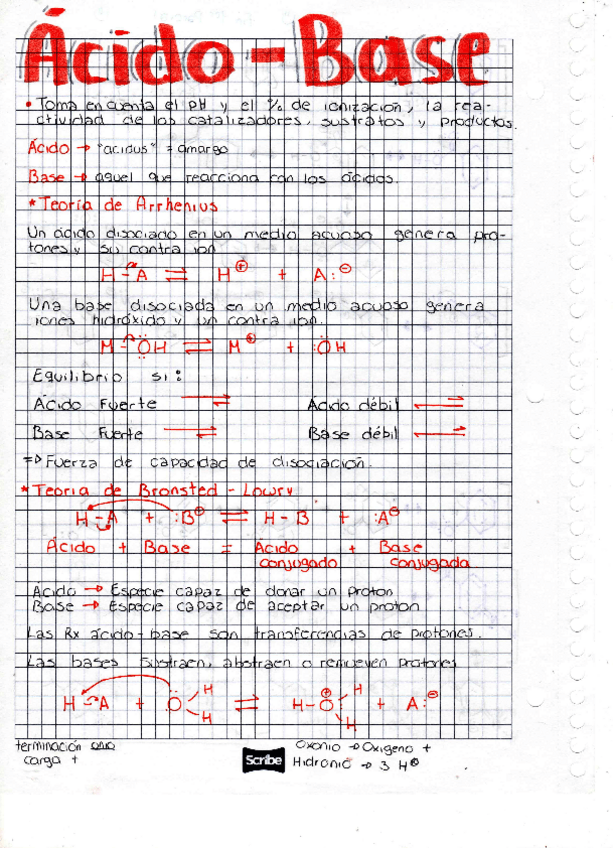 Ácido - Base
• Toma en cuenta el pH y el % de ionización, la rea-
ctividad de los catalizadores, sustratos y productos.
Ácido → "acidus" = amargo
Base → aquel que reacciona con los ácidos.
* Teoría de Arrhenius
Un ácido disociado en un medio acuoso genera pro-
tones y su contra ion
H-A ⇌ H⊕ + A:⊖
Una base disociada en un medio acuoso genera
iones hidróxido y un contra ion.
M-ÖH ⇌ M⊕ + :ÖH
Equilibrio si:
Ácido Fuerte ⇌ Ácido débil ⇌
Base Fuerte ⇌ Base débil ⇌
=> Fuerza de capacidad de disociación.
* Teoría de Bronsted - Lowry
H-A + :B⊖ ⇌ H-B + :A⊖
Ácido + Base = Ácido conjugado + Base conjugada
Ácido → Especie capaz de donar un proton
Base → Especie capaz de aceptar un proton
Las Rx ácido-base son transferencias de protones.
Las bases sustraen, abstraen o remueven protones
H-A + Ö H H ⇌ H-O⊕ H H + A:⊖
terminación onio
carga +
Scribe
Oxonio → Oxigeno +
Hidronio → 3 H⊕